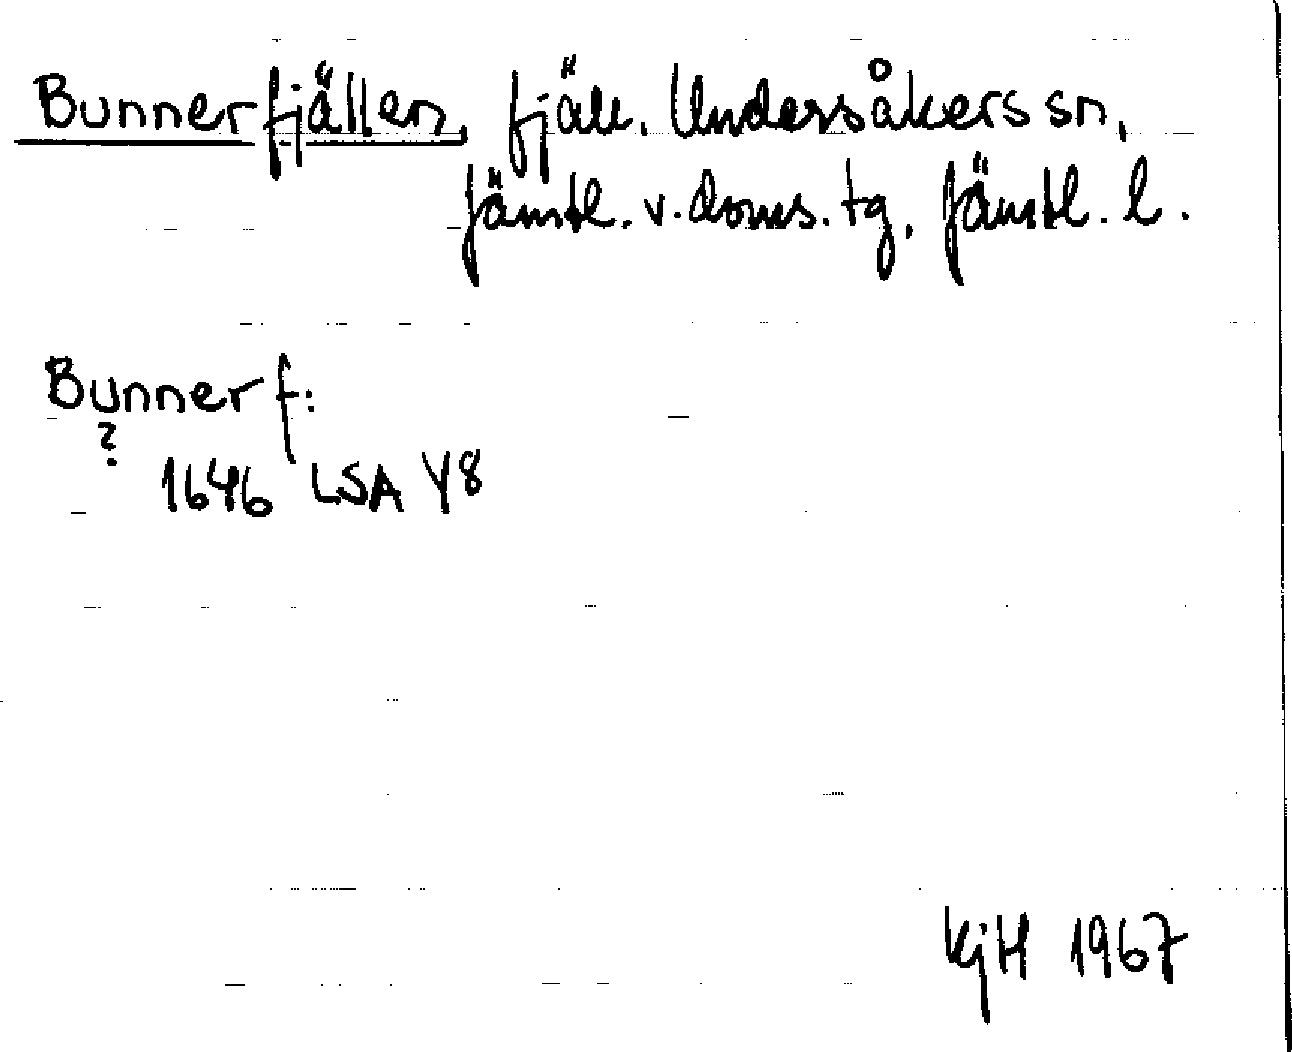 Bunnerfjällen, fjäll. Undersåkers sn,
Jämtl. v. doms. tg, Jämtl. l.
Bunner f:
?
1646 LSA Y8
KjH 1967